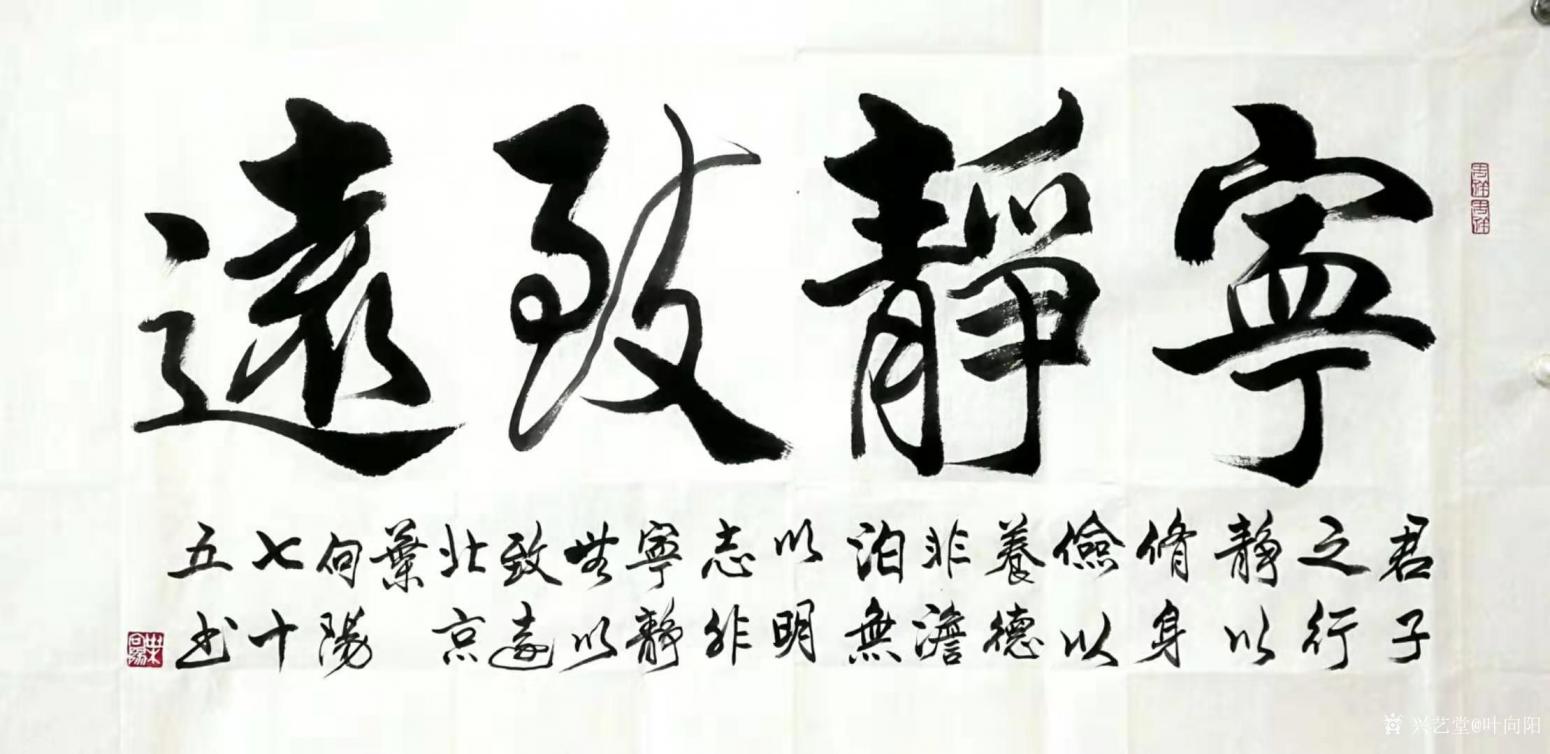 寧靜致遠
君子
之行
靜以
脩身
儉以
養德
非澹
泊無
以明
志非
寧靜
無以
致遠
北京
葉
向陽
七十
五书
兴艺堂@叶向阳